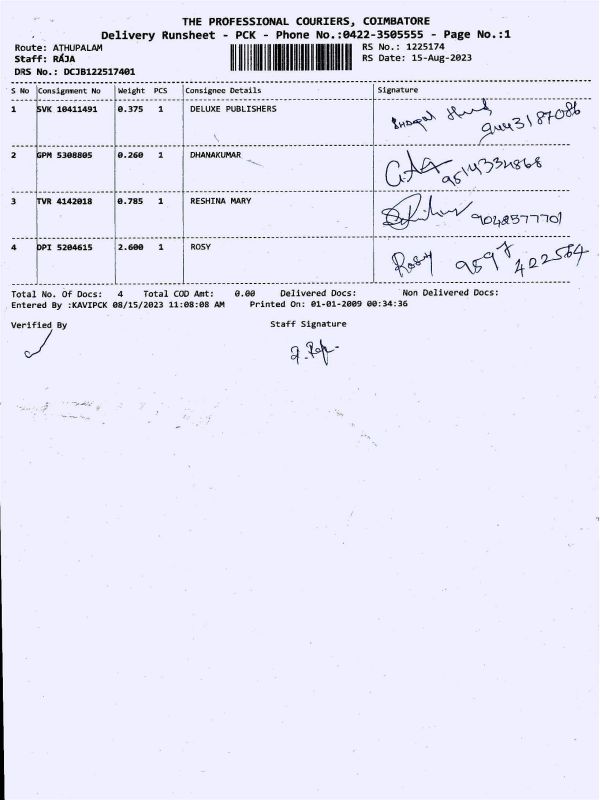 THE PROFESSIONAL COURIERS, COIMBATORE
Delivery Runsheet - PCK - Phone No.:0422-3505555 - Page No.:1
Route: ATHUPALAM RS No.: 1225174
Staff: RAJA RS Date: 15-Aug-2023
DRS No.: DCJB122517401
S No Consignment No Weight PCS Consignee Details Signature
1 SVK 10411491 0.375 1 DELUXE PUBLISHERS 9443187086
2 GPM 5308805 0.260 1 DHANAKUMAR 9514334868
3 TVR 4142018 0.785 1 RESHINA MARY 9048577701
4 DPI 5204615 2.600 1 ROSY Rosy 9597 422564
Total No. Of Docs: 4 Total COD Amt: 0.00 Delivered Docs: Non Delivered Docs:
Entered By :KAVIPCK 08/15/2023 11:08:08 AM Printed On: 01-01-2009 00:34:36
Verified By Staff Signature